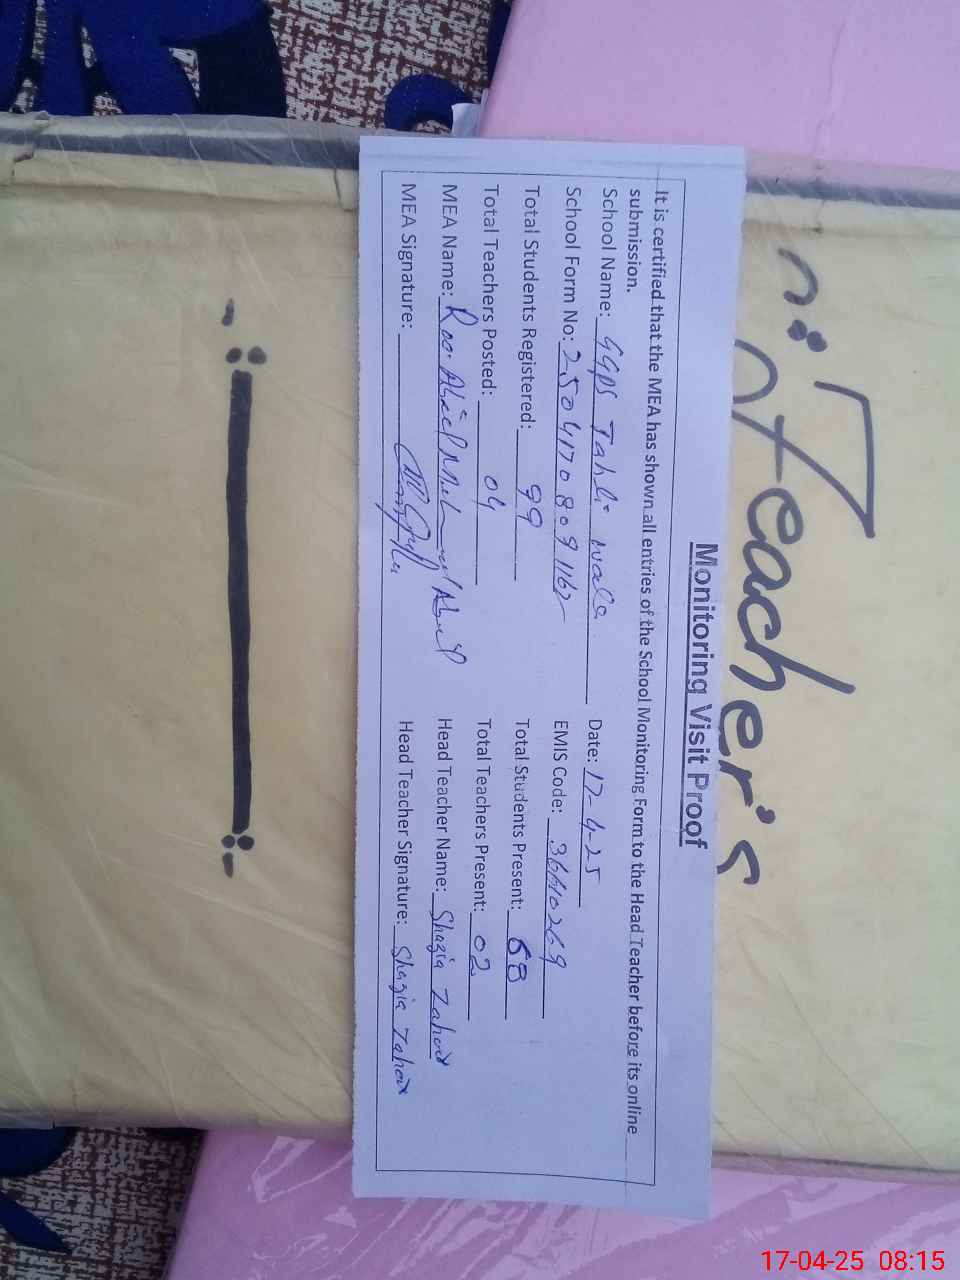 Teacher's
Monitoring Visit Proof
It is certified that the MEA has shown all entries of the School Monitoring Form to the Head Teacher before its online
submission.
School Name: GGPS Tahli wala Date: 17-4-25
School Form No: EMIS Code:
Total Students Registered: 99 Total Students Present: 68
Total Teachers Posted: 04 Total Teachers Present: 02
MEA Name: Head Teacher Name: Shazia
MEA Signature: Head Teacher Signature: Shazia
17-04-25 08:15